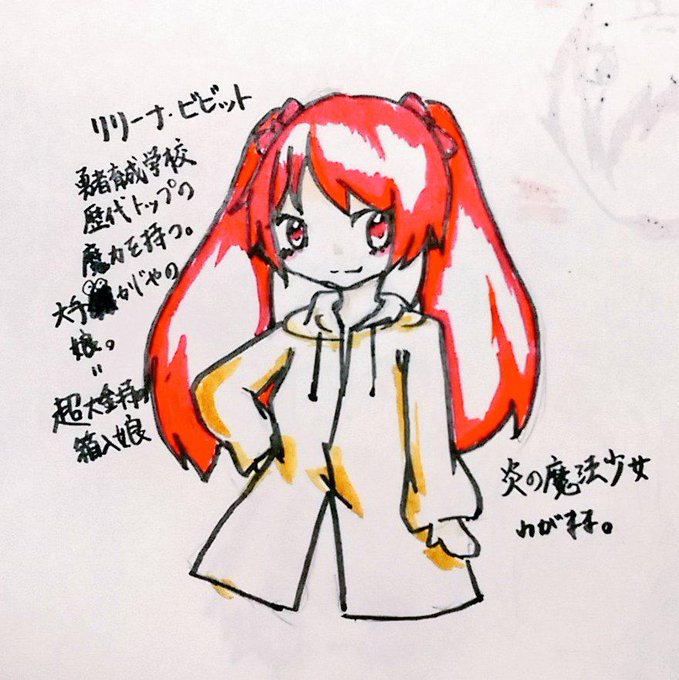 リリーナ・ビビット
勇者育成学校
歴代トップの
魔力を持つ。
大手かじやの
娘。
=
超大金持の
箱入娘
炎の魔法少女
わがまま。